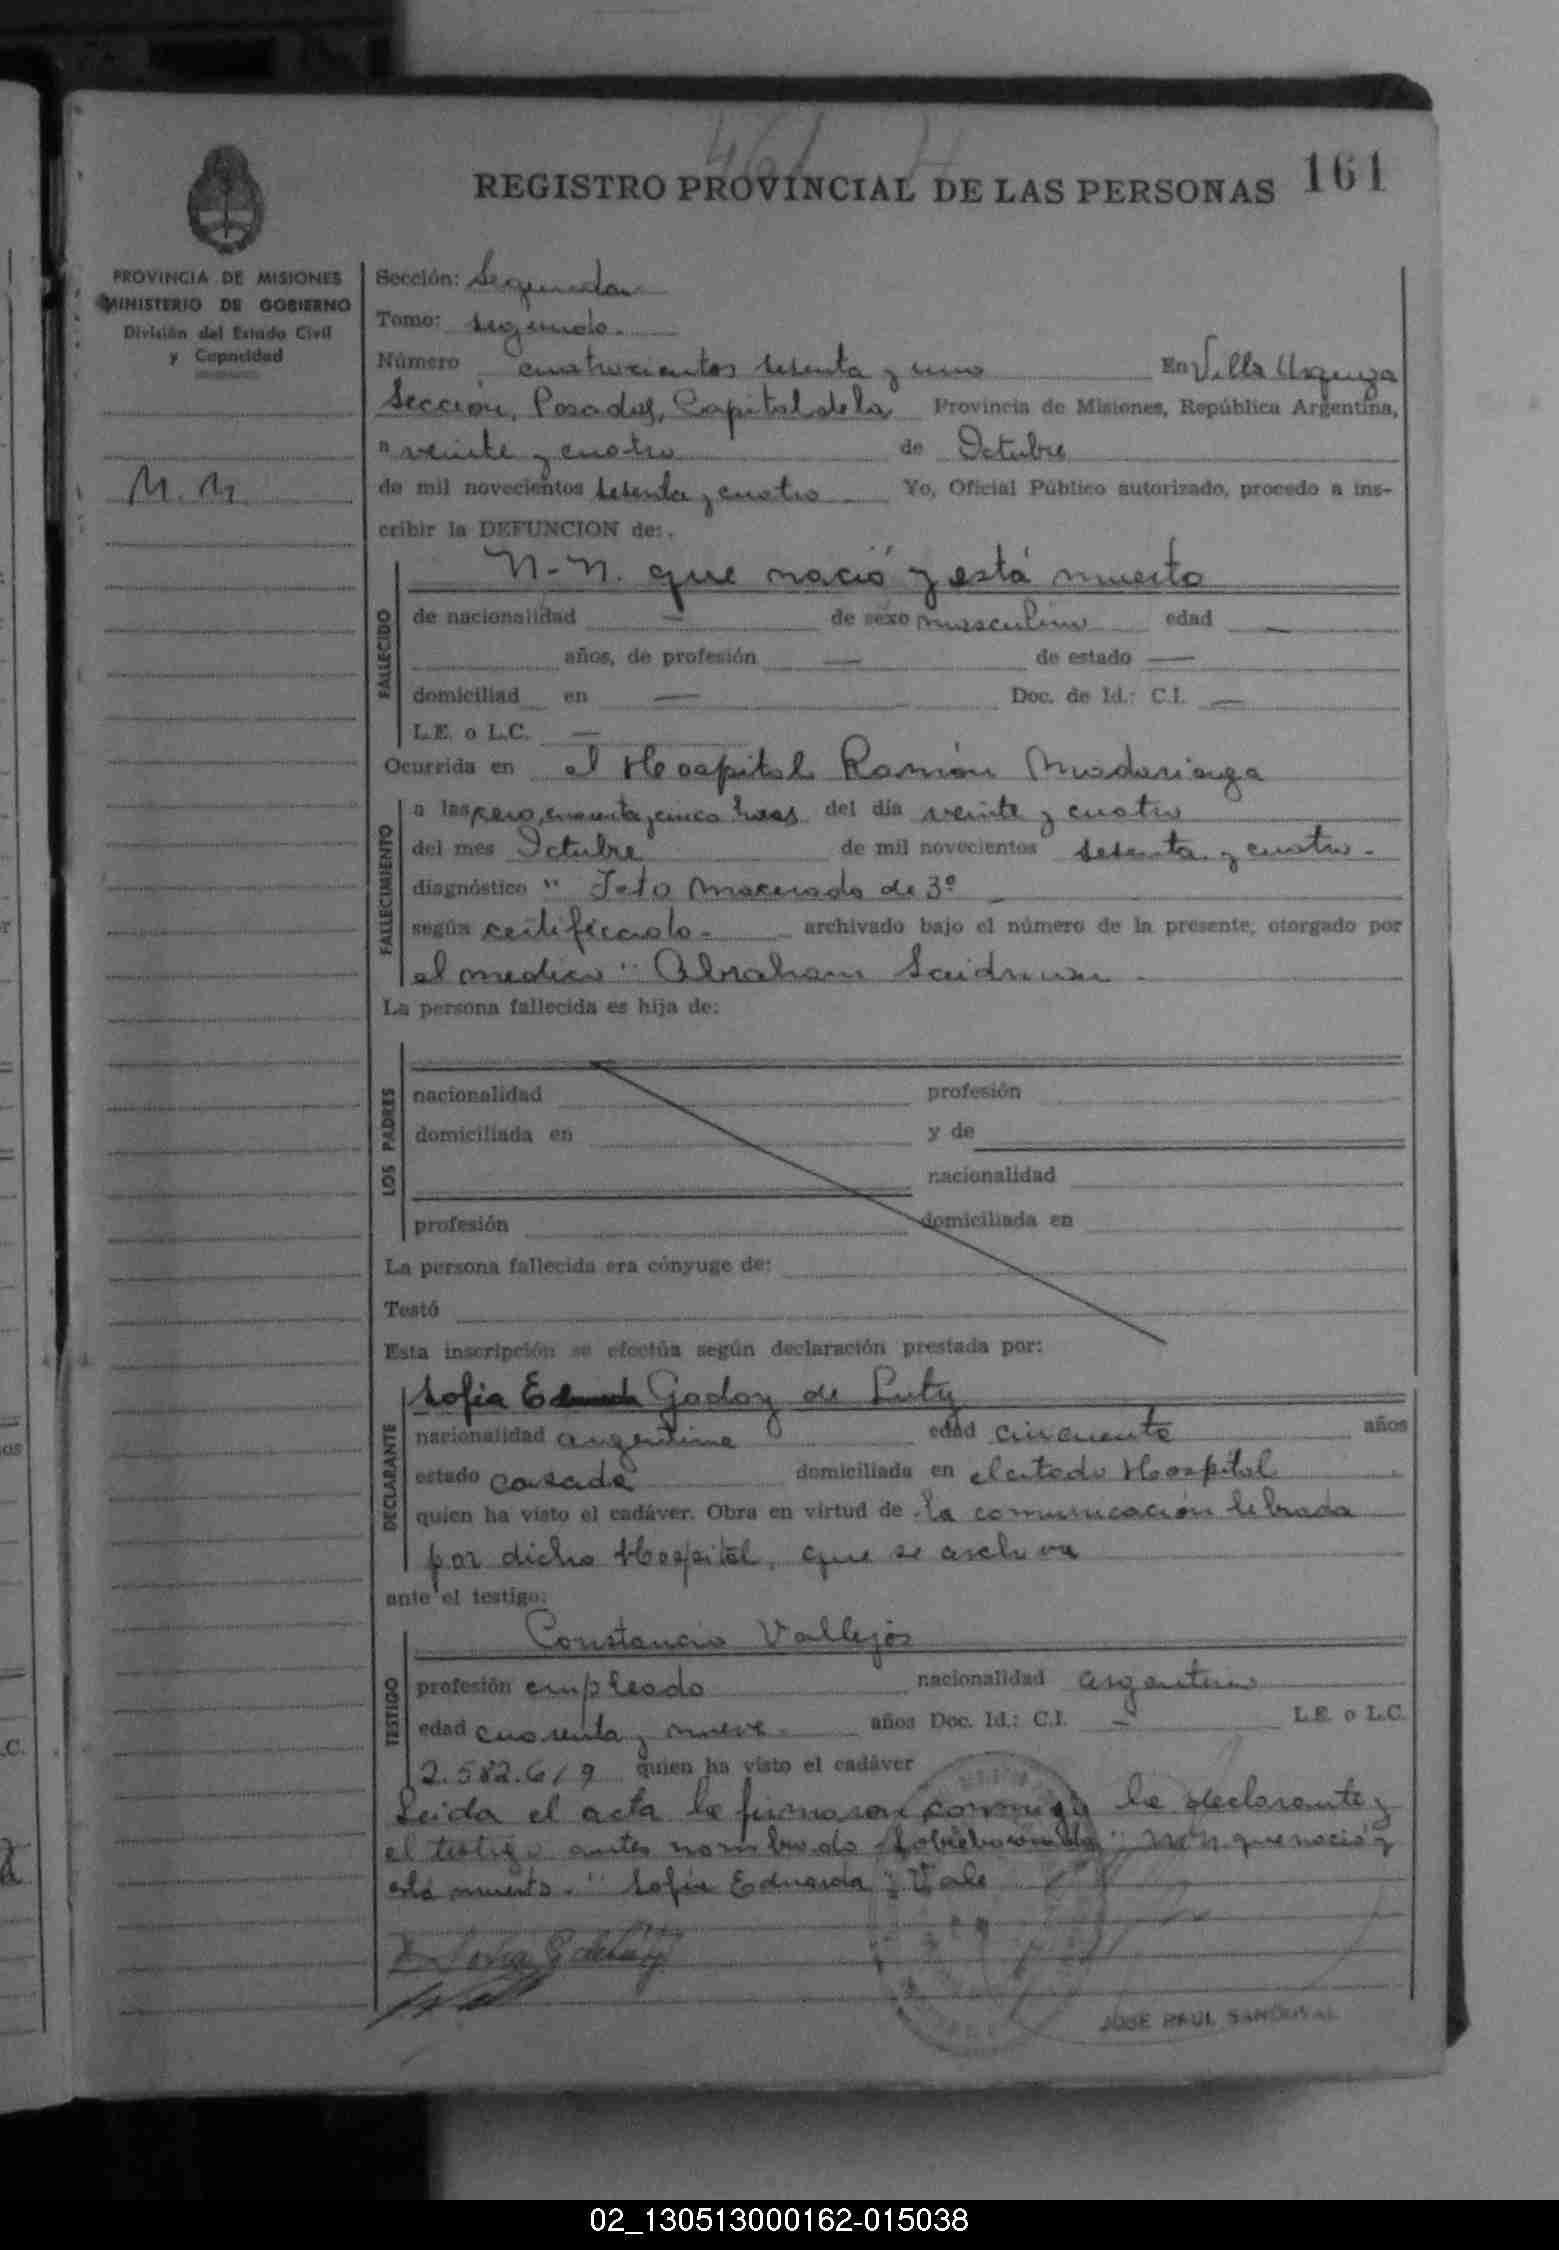 461
REGISTRO PROVINCIAL DE LAS PERSONAS 161
PROVINCIA DE MISIONES
MINISTERIO DE GOBIERNO
División del Estado Civil
y Capacidad
N. N.
Sección: Segunda
Tomo: segundo.
Número cuatrocientos sesenta y uno En Villa Urquiza
Sección, Posadas, Capital de la Provincia de Misiones, República Argentina,
a veinte y cuatro de Octubre
de mil novecientos setenta y cuatro Yo, Oficial Público autorizado, procedo a ins-
cribir la DEFUNCION de:
FALLECIDO
N-N. que nació y está muerto
de nacionalidad — de sexo masculino edad —
años, de profesión — de estado —
domiciliad en — Doc. de Id.: C.I. —
L.E. o L.C. —
Ocurrida en el Hospital Ramón Madariaga
FALLECIMIENTO
a las cero, cuarenta y cinco horas del día veinte y cuatro
del mes Octubre de mil novecientos setenta y cuatro.
diagnóstico " Feto Macerado de 3º
según certificado. archivado bajo el número de la presente, otorgado por
el medico " Abraham Saidman.
La persona fallecida es hija de:
LOS PADRES
nacionalidad profesión
domiciliada en y de
nacionalidad
profesión domiciliada en
La persona fallecida era cónyuge de:
Testó
Esta inscripción se efectúa según declaración prestada por:
DECLARANTE
Sofia Eduarda Godoy de Luty
nacionalidad argentina edad cincuenta años
estado casada domiciliada en el citado Hospital
quien ha visto el cadáver. Obra en virtud de la comunicación librada
por dicho Hospital, que se archiva
ante el testigo:
TESTIGO
Constancio Vallejos
profesión empleado nacionalidad argentino
edad cuarenta y nueve. años Doc. Id.: C.I. — L.E. o L.C.
2.582.619 quien ha visto el cadáver
Leida el acta la firmaron conmigo la declarante y
el testigo antes nombrado Sobreborrado " N.N. que nació y
está muerto. " Sofia Eduarda ": Vale
JOSE RAUL SANDOVAL
02_130513000162-015038